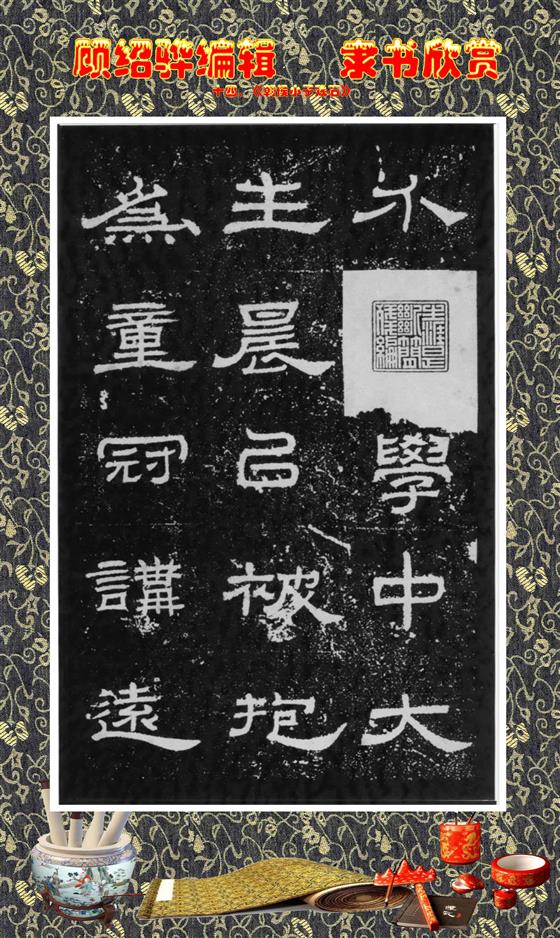 顾绍骅编辑 隶书欣赏
不學中大
主晨㠯被抱
為童冠講遠